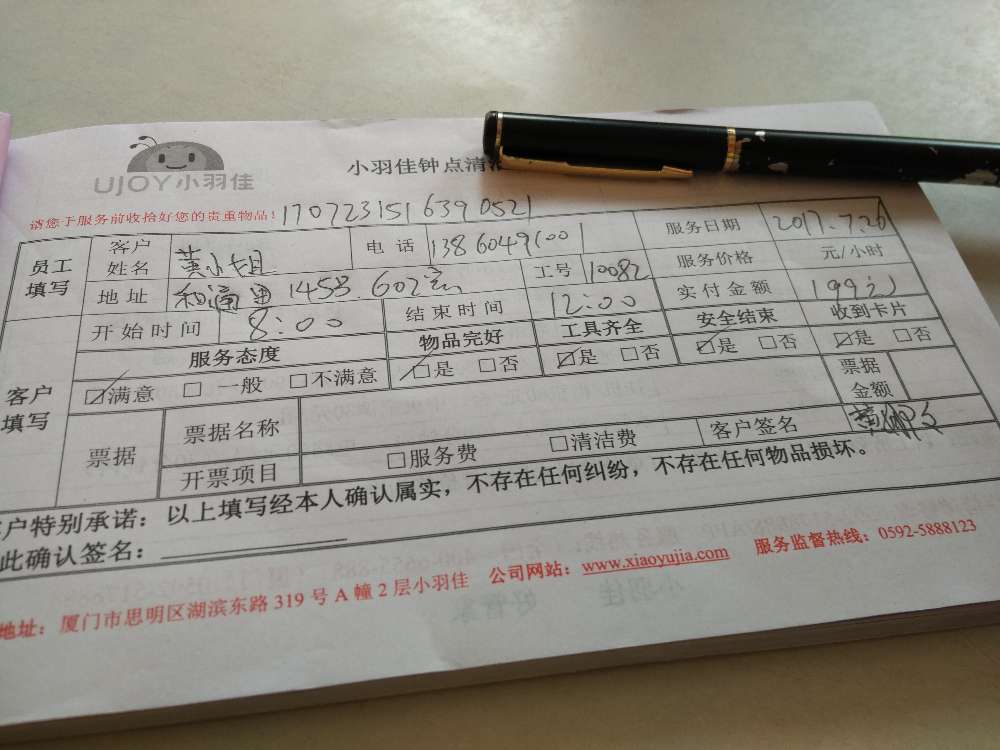 UJOY小羽佳
小羽佳钟点清洁
请您于服务前收拾好您的贵重物品! 1707231516390521
员工填写 客户姓名 黄小姐 电话 13860491001 服务日期 2017.7.26
地址 和通里145号602室 工号 10082 服务价格 元/小时
开始时间 8:00 结束时间 12:00 实付金额 199元
客户填写 服务态度 物品完好 工具齐全 安全结束 收到卡片
☑满意 □一般 □不满意 ☑是 □否 ☑是 □否 ☑是 □否 ☑是 □否
票据 票据名称 票据金额
开票项目 □服务费 □清洁费 客户签名
客户特别承诺：以上填写经本人确认属实，不存在任何纠纷，不存在任何物品损坏。
此确认签名：
地址：厦门市思明区湖滨东路319号A幢2层小羽佳 公司网站：www.xiaoyujia.com 服务监督热线：0592-5888123